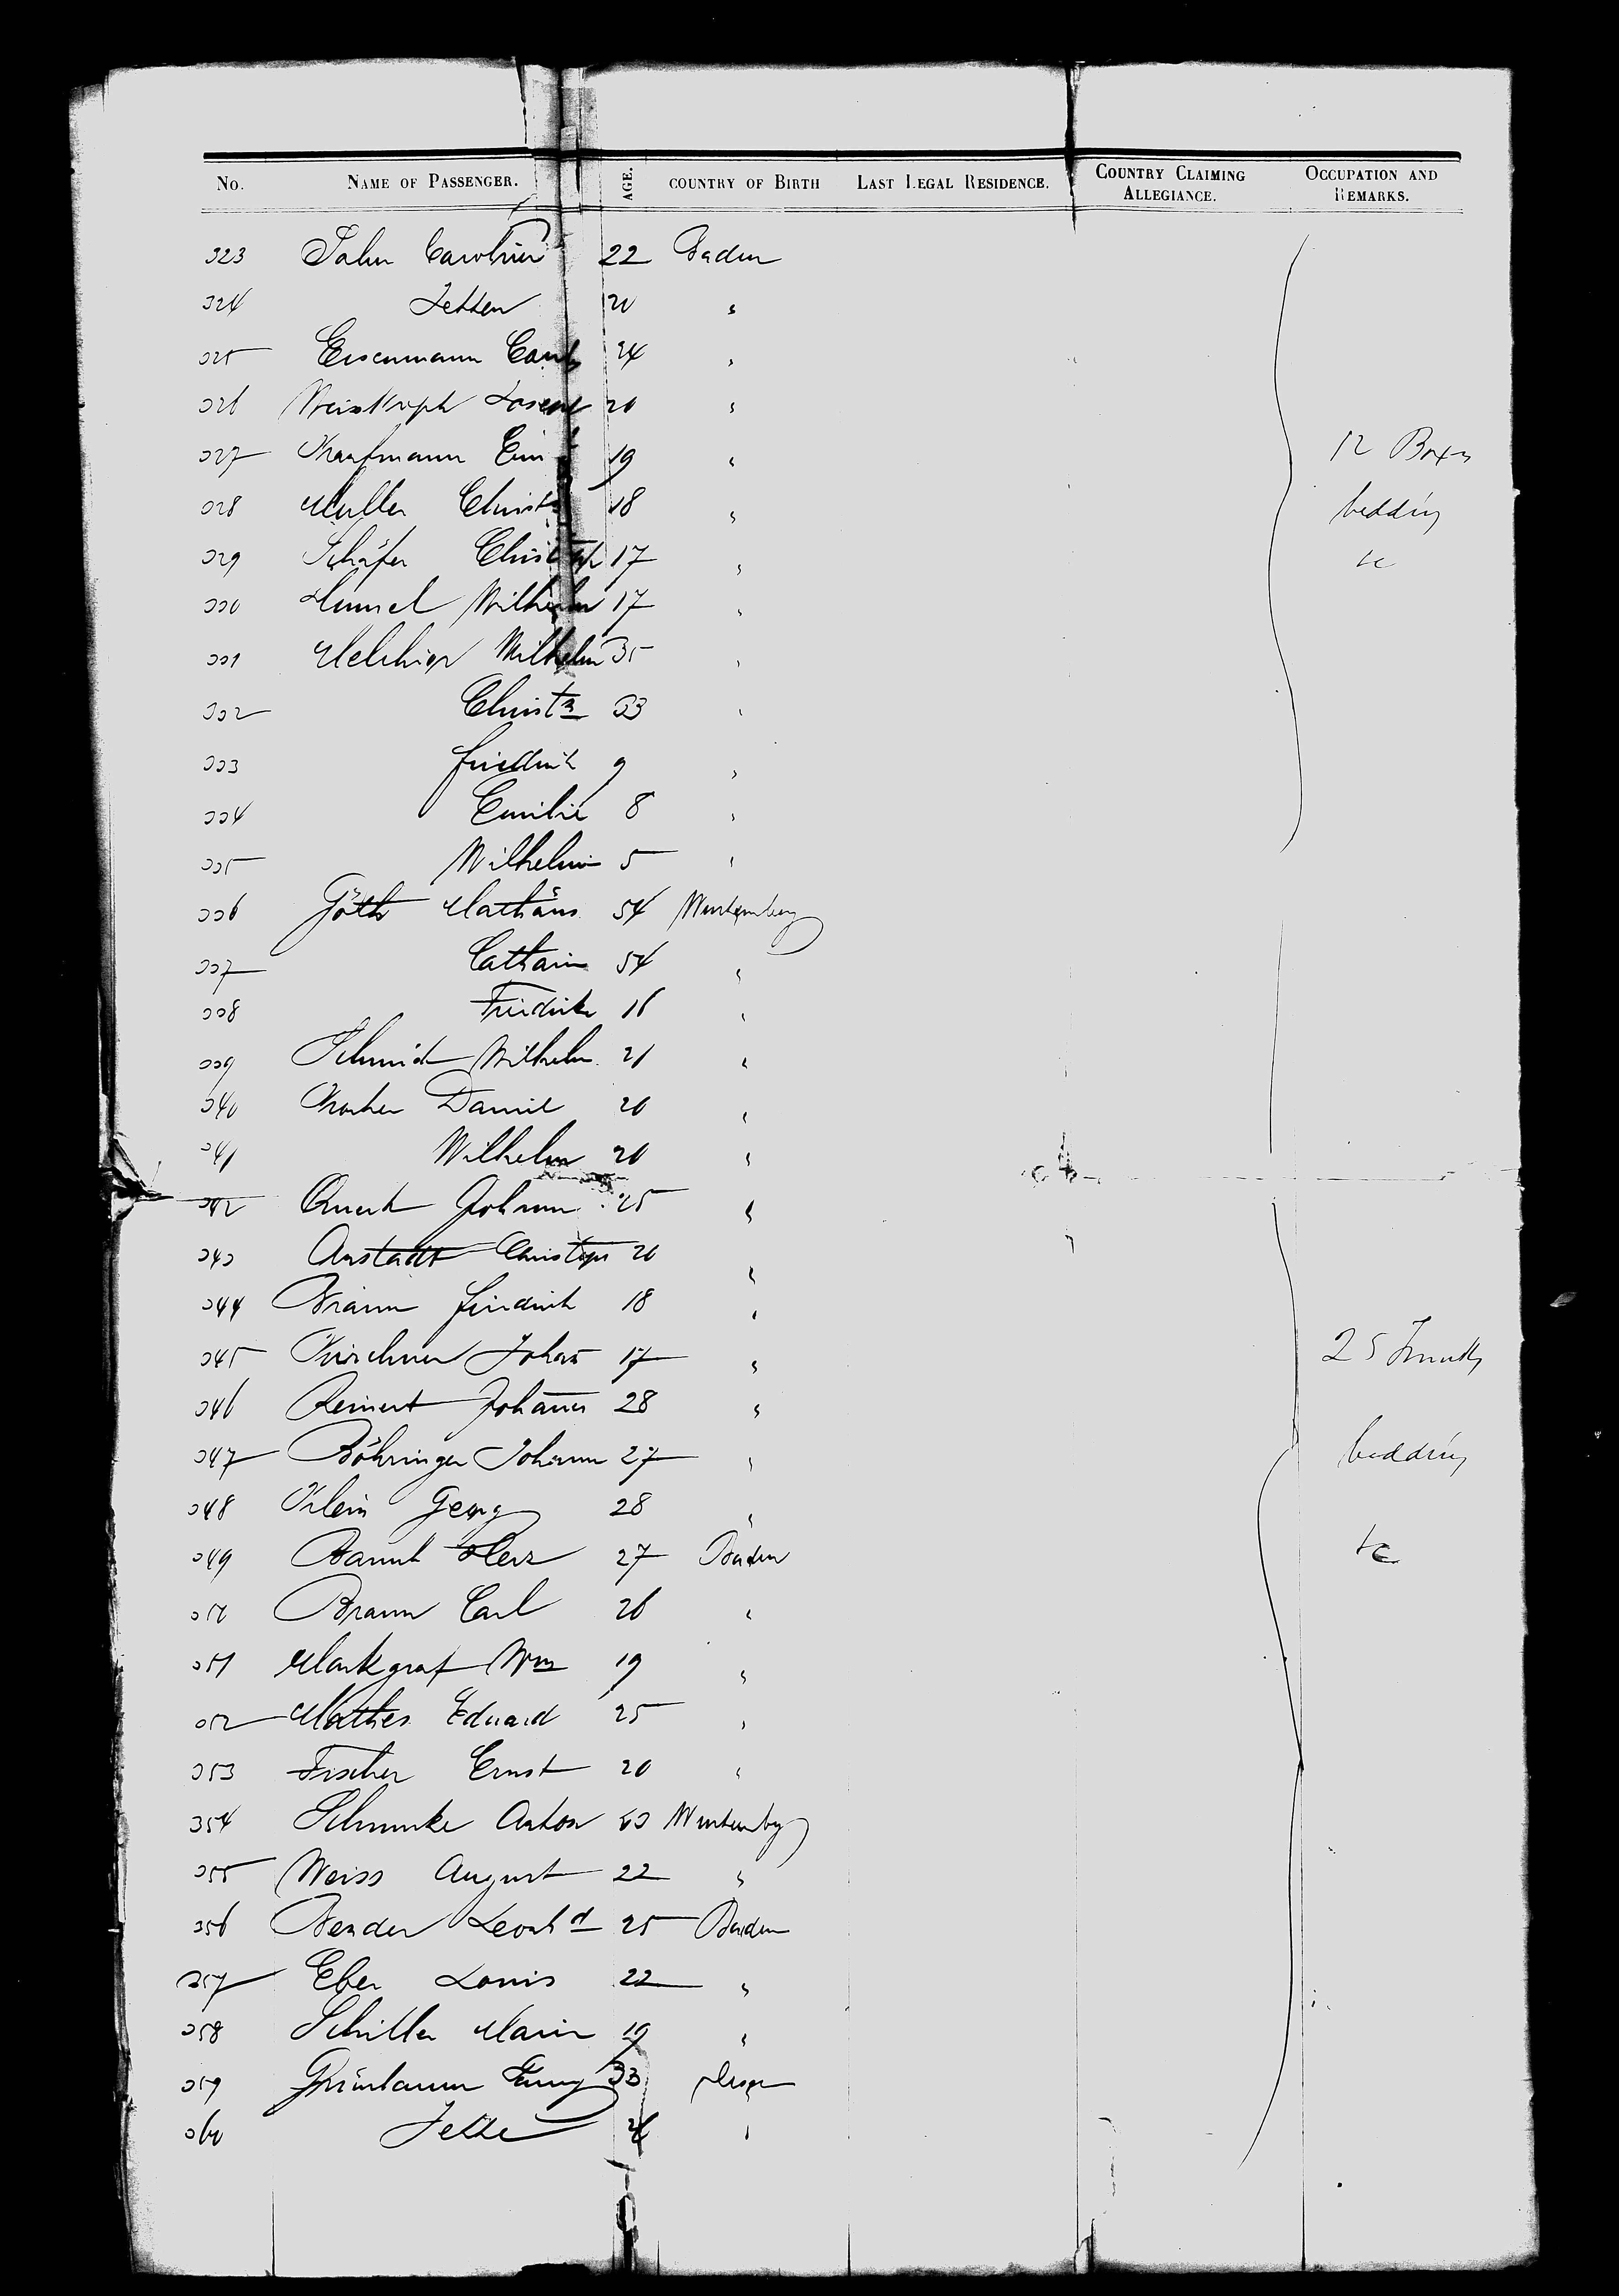 No. NAME OF PASSENGER. AGE. COUNTRY OF BIRTH LAST LEGAL RESIDENCE. COUNTRY CLAIMING ALLEGIANCE. OCCUPATION AND REMARKS.
323 22 Baden
324 20 "
325 Eisenmann 24 "
326 20 "
327 Kaufmann 19 " 12 Boxes
328 Muller Christ 18 " bedding
329 Schäfer Christoph 17 " &c
330 Wilhelm 17 "
331 Melchior Wilhelm 35 "
332 Christn 33 "
333 Friedrich 9 "
334 Emilie 8 "
335 Wilhelm 5 "
336 Göth Mathäus 54 Wurtemberg
337 Catharin 54 "
338 Friedrike 16 "
339 Schmid Wilhelm 21 "
340 Daniel 20 "
341 Wilhelm 20 "
342 Johann 25 "
343 Anstadt Christoph 20 "
344 Braun Friedrich 18 "
345 Kirschner Johan 17 " 25 Trunks
346 Reinert Johannes 28 "
347 Böhringer Johann 27 " bedding
348 Klein Georg 28 "
349 Herz 27 Baden &c
350 Braun Carl 26 "
351 Markgraf Wm 19 "
352 Mathes Eduard 25 "
353 Fischer Ernst 20 "
354 Anton Wurtemberg
355 Weiss August 22 "
356 Bender Leonhd 25 Baden
357 Eber Louis 22 "
358 Schiller Marie 19 "
359 Grünbaum Fanny 33
360 Jette "